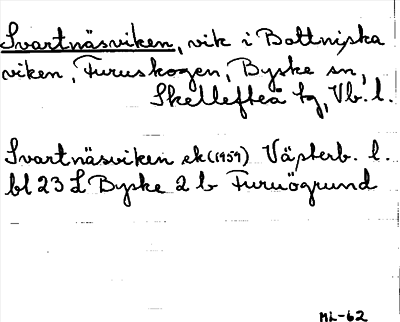 Svartnäsviken, vik i Bottniska
viken, Furuskogen, Byske sn,
Skellefteå tg, Vb. l.
Svartnäsviken ek (1959) Västerb. l.
bl 23 L Byske 2 b Furuögrund
ML-62